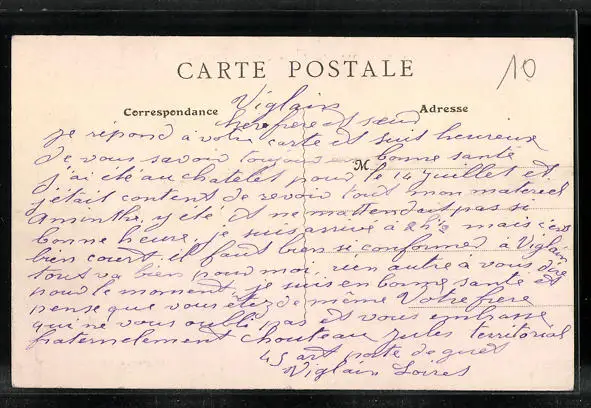 CARTE POSTALE
10
Correspondance
Adresse
Viglain
chere frere et sœur
je répond a votre carte et suis heureuse
de vous savoir toujour en bonne santé
M
j'ai été au chatelet pour le 14 juillet et
j'était content de revoir tout mon materiel
aminthe y été et ne m'attendait pas si
bonne heure, je suis arrivé a 2h½ mais c'est
bien court. il faut bien si conformer a Viglain
tout va bien pour moi, rien autre a vous dire
pour le moment je suis en bonne santé et
pense que vous etez de même Votre frere
qui ne vous oublie pas et vous embrasse
fraternelement chouteau jules territorial
45 art poste de guet
Viglain Loiret